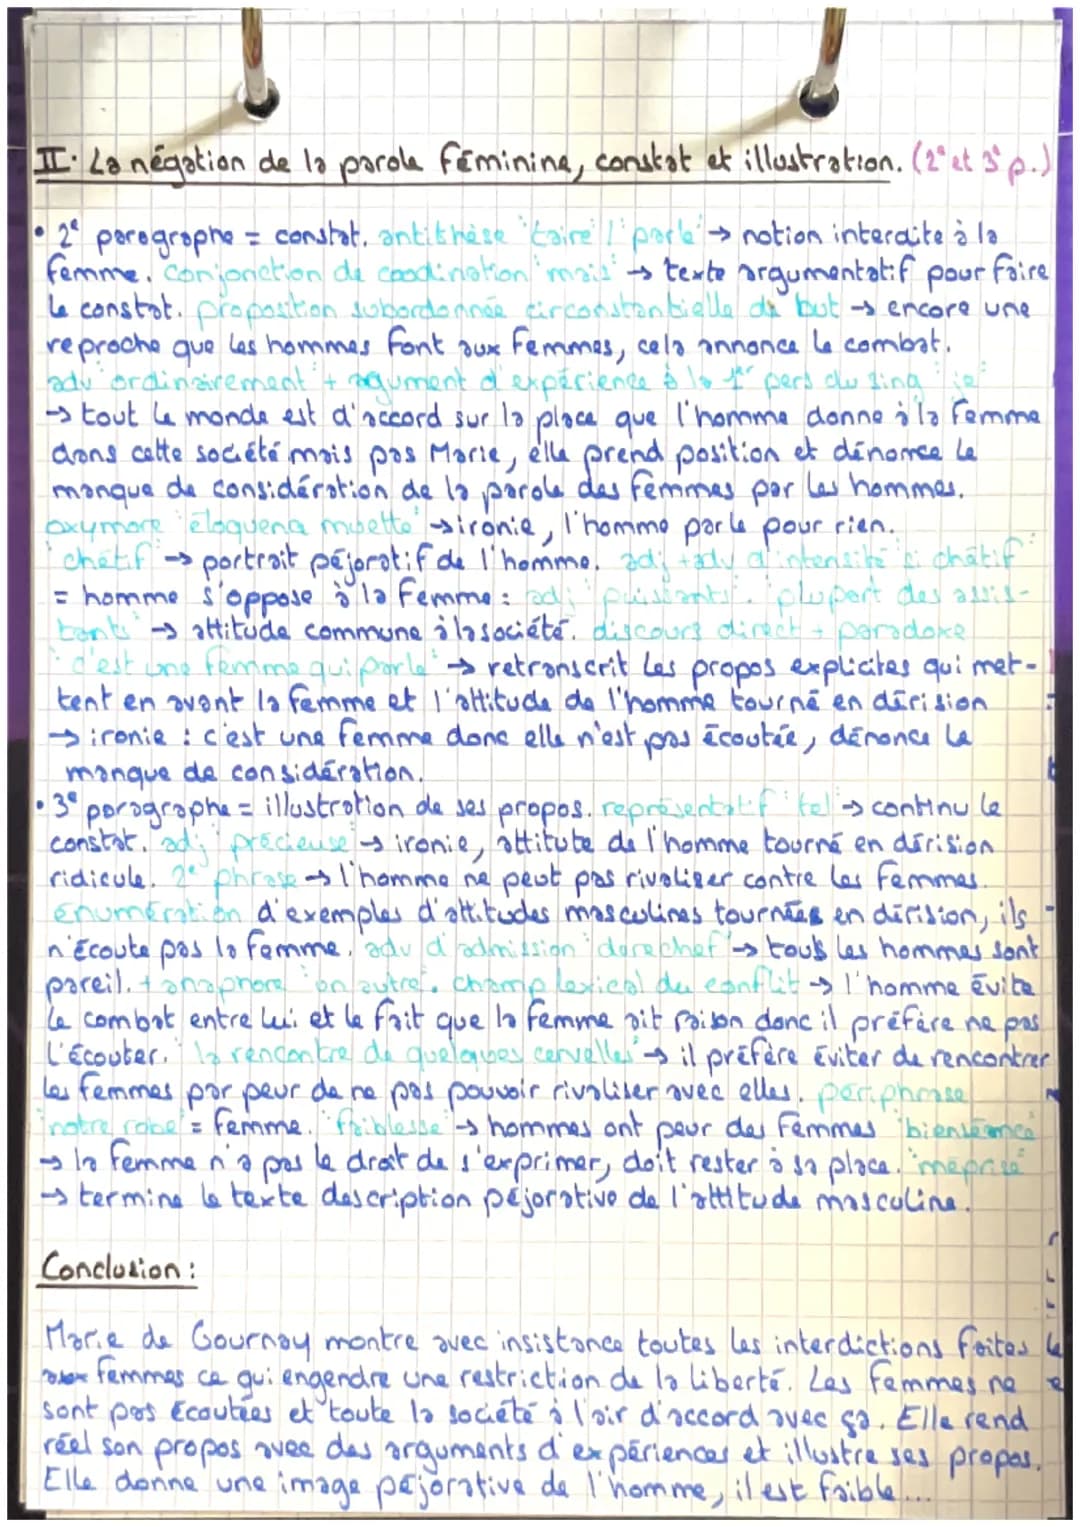 II. La négation de la parole féminine, constat et illustration. (2e et 3e p.)
• 2e paragraphe = constat. antithèse "taire"/"parle" → notion interdite à la
femme. conjonction de coodination "mais" → texte argumentatif pour faire
le constat. proposition subordonnée circonstantielle de but → encore une
reproche que les hommes font aux femmes, cela annonce le combat.
adv "ordinairement" + argument d'expérience à la 1er pers du sing "je"
→ tout le monde est d'accord sur la place que l'homme donne à la femme
dans cette société mais pas Marie, elle prend position et dénonce le
manque de considération de la parole des femmes par les hommes.
oxymore "éloquence muette" → ironie, l'homme parle pour rien.
"chétif" → portrait péjoratif de l'homme. adj + adv d'intensité "si chétif"
= homme s'oppose à la femme : adj "puissants". "plupart des assis-
tants" → attitude commune à la société. discours direct + paradoxe
"c'est une femme qui parle" → retranscrit les propos explicites qui met-
tent en avant la femme et l'attitude de l'homme tourné en dérision
→ ironie : c'est une femme donc elle n'est pas écoutée, dénonce le
manque de considération.
• 3e paragraphe = illustration de ses propos. représentatif "tel" → continu le
constat. adj "précieuse" → ironie, attitute de l'homme tourné en dérision
ridicule. 2e phrase → l'homme ne peut pas rivaliser contre les femmes.
énumération d'exemples d'attitudes masculines tournées en dérision, ils
n'écoute pas la femme. adv d'admission "derechef" → tous les hommes sont
pareil. + anaphore "un autre". champ lexical du conflit → l'homme évite
le combat entre lui et le fait que la femme ait raison donc il préfère ne pas
l'écouter. "la rencontre de quelques cervelles" → il préfère éviter de rencontrer
les femmes par peur de ne pas pouvoir rivaliser avec elles. périphrase
"notre robe" = femme. "faiblesse" → hommes ont peur des femmes "bienséance"
→ la femme n'a pas le droit de s'exprimer, doit rester à sa place. "méprise"
→ termine le texte description péjorative de l'attitude masculine.
Conclusion :
Marie de Gournay montre avec insistance toutes les interdictions faites
aux femmes ce qui engendre une restriction de la liberté. Les femmes ne
sont pas écoutées et toute la société à l'air d'accord avec ça. Elle rend
réel son propos avec des arguments d'expériences et illustre ses propos.
Elle donne une image péjorative de l'homme, il est faible...